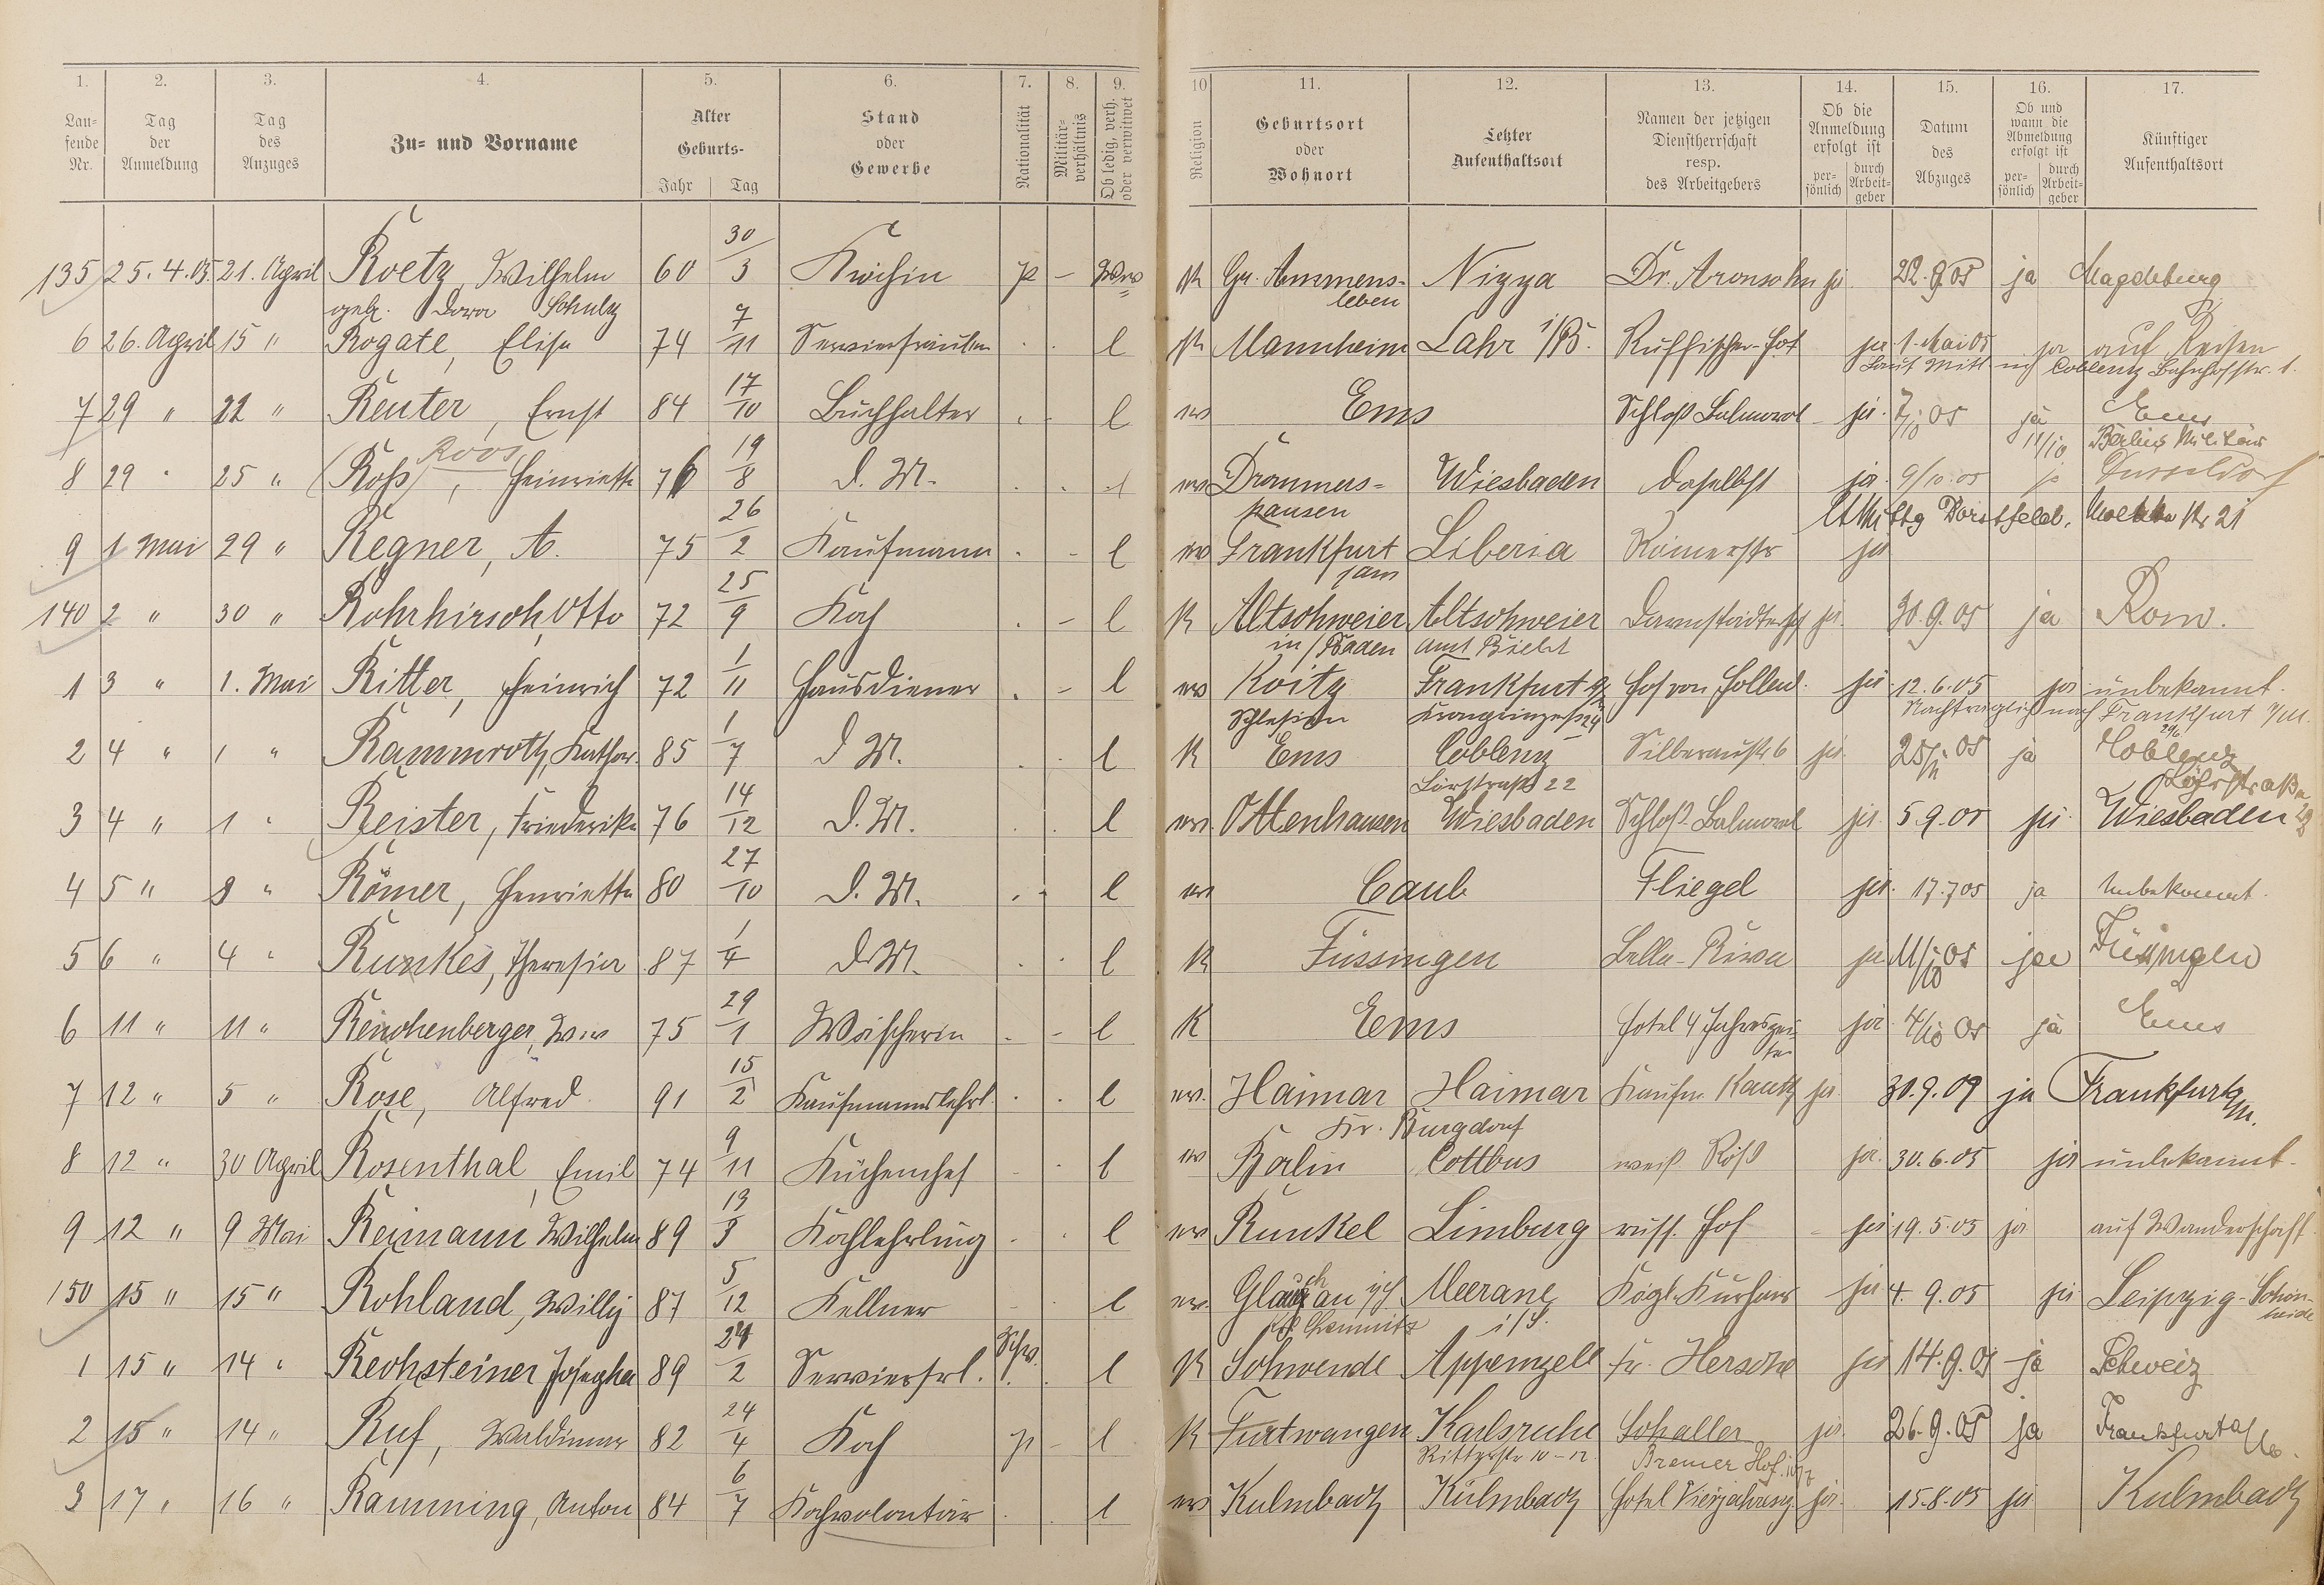 1. 2. 3. 4. 5. 6. 7. 8. 9. 10 11. 12. 13. 14. 15. 16. 17.
Lau-fende Nr. Tag der Anmeldung Tag des Anzuges Zu- und Vorname Alter Geburts- Jahr Tag Stand oder Gewerbe Nationalität Militär-verhältnis Ob ledig, verh. oder verwitwet Religion Geburtsort oder Wohnort Letzter Aufenthaltsort Namen der jetzigen Dienstherrschaft resp. des Arbeitgebers Ob die Anmeldung erfolgt ist per-sönlich durch Arbeit-geber Datum des Abzuges Ob und wann die Abmeldung erfolgt ist per-sönlich durch Arbeit-geber Künftiger Aufenthaltsort
135 25. 4. 05. 21. April Roetz, Wilhelm 60 30/3 Köchin p - Wwe K Gr. Ammens- Nizza Dr. Aronsohn ja 22.9.05 ja Magdeburg
geb. Dora Schulz leben
6 26. April 15 " Rogate, Elise 74 7/11 Servierfräulein . . l K Mannheim Lahr i/B. Russischer-Hof ja 1. Mai 05 ja auf Reisen
Laut Mittl. n/ Coblenz Bahnhofstr. 1.
7 29 " 22 " Reuter, Ernst 84 17/10 Buchhalter . . l ev Ems Schloß Balmoral ja. 7/10 05 ja Ems
11/10 Berlin Militär
Roos
8 29 " 25 " (Roß), Henriette 76 19/8 d. M. . . l ev Drommers- Wiesbaden daselbst ja. 9/10.05 ja Dusseldorf
hausen Dorstfeld, Nr 21
9 1 Mai 29 " Regner, A. 75 26/2 Kaufmann . - l ev Frankfurt Liberia Römerstr ja
140 2 " 30 " Rohrhirsch, Otto 72 25/9 Koch . - l K Altschweier Altschweier Darmstädterhof ja. 30.9.05 ja Rom.
in/Baden Amt Bühl
1 3 " 1. Mai Ritter, Heinrich 72 1/11 Hausdiener . - l ev Koitz Frankfurt Hof von Holland ja 12.6.05 ja unbekannt.
Schlesien Kronprinzenstr 24 Nachträglich nach Frankfurt a/M.
2 4 " 1 " Rammroth, Kathar. 85 1/7 d M. . . l K Ems Coblenz Silberaustr 6 ja. 25/11 05 ja Coblenz
Lörstraß 22 Löhrstraße 22
3 4 " 1 " Reister, Friederike 76 14/12 d. M. . . l ev. Ottenhausen Wiesbaden Schloß Balmoral ja. 5.9.05 ja Wiesbaden
4 5 " 3 " Römer, Henriette 80 27/10 d. M. . - l ev Caub Fliegel ja. 17.7 05 ja Unbekannt.
5 6 " 4 " Runkes, Theresia 87 1/4 d. M. . . l K Füssingen Bella-Riva ja 11/10 05 ja Füssingen
6 11 " 11 " Reichenberger, Wwe 75 29/1 Wäscherin . - l K Ems Hotel 4 Jahreszei- ja 4/10 05 ja Ems
ten
7 12 " 5 " Rose, Alfred 91 15/2 Kaufmannslehrl. . . l ev. Haimar Haimar Kaufm. Kauth ja. 30.9.09 ja Frankfurt a/M.
Kr. Burgdorf
8 12 " 30 April Rosenthal, Emil 74 9/11 Küchenchef . . l ev Berlin Cottbus weiß. Röß ja. 30.6.05 ja unbekannt.
9 12 " 9 Mai Reimann Wilhelm 89 13/3 Kochlehrling . . l ev Runkel Limburg russ. Hof - ja 19.5.05 ja auf Wanderschaft
150 15 " 15 " Rohland, Willy 87 5/12 Kellner . . l ev. Glauchau Meerane Kögl. Kurhaus ja 4. 9. 05 ja Leipzig-Schön-
Chemnitz i/S. heide
1 15 " 14 " Rechsteiner Josepha 89 24/2 Servierfrl. Schw. . l K Schwende Appenzell Fr. Hersche ja 14.9.05 ja Schweiz
2 15 " 14 " Ruf, Waldimar 82 24/4 Koch p - l K Furtwangen Karlsruhe Schaller ja 26.9.05 ja Frankfurt a/M.
Ritterstr 10-12 Bremer Hof.
3 17 " 16 " Ramming, Anton 84 6/7 Kochvolontär . . l ev Kulmbach Kulmbach Hotel Vierjahresz. ja. 15.8.05 ja Kulmbach